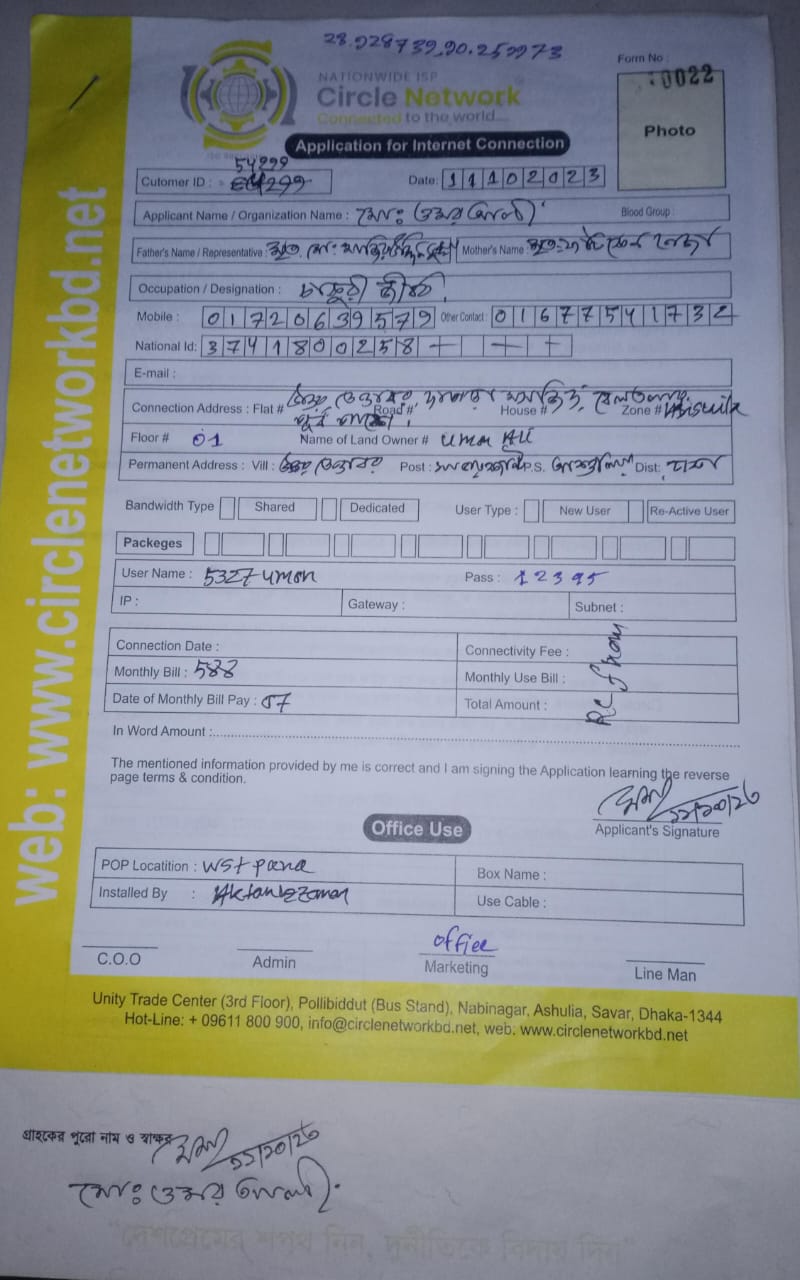 Form No :
0022
NATIONWIDE ISP
Circle Network
Connected to the world....
Photo
Application for Internet Connection
54299
Cutomer ID :
Date: 11102023
Applicant Name / Organization Name : মোঃ ওমর আলী
Blood Group :
Father's Name / Representative : মৃত মোঃ
Mother's Name :
Occupation / Designation :
Mobile : 01720639579 Other Contact : 01677541732
National Id: 3741800258
E-mail :
Connection Address : Flat # Road # House # Zone #
Floor # 01 Name of Land Owner # Umar Ali
Permanent Address : Vill : Post : P.S. Dist: ঢাকা
Bandwidth Type Shared Dedicated User Type : New User Re-Active User
Packeges
User Name : 5327umor Pass : 12345
IP : Gateway : Subnet :
Connection Date : Connectivity Fee :
Monthly Bill : 588 Monthly Use Bill :
Date of Monthly Bill Pay : 07 Total Amount :
In Word Amount :
The mentioned information provided by me is correct and I am signing the Application learning the reverse
page terms & condition.
Applicant's Signature
Office Use
POP Locatition : Box Name :
Installed By : Use Cable :
office
C.O.O Admin Marketing Line Man
Unity Trade Center (3rd Floor), Pollibiddut (Bus Stand), Nabinagar, Ashulia, Savar, Dhaka-1344
Hot-Line: + 09611 800 900, info@circlenetworkbd.net, web: www.circlenetworkbd.net
web: www.circlenetworkbd.net
গ্রাহকের পুরো নাম ও স্বাক্ষর
মোঃ ওমর আলী
"দেশপ্রেমের শপথ নিন, দুর্নীতিকে বিদায় দিন"